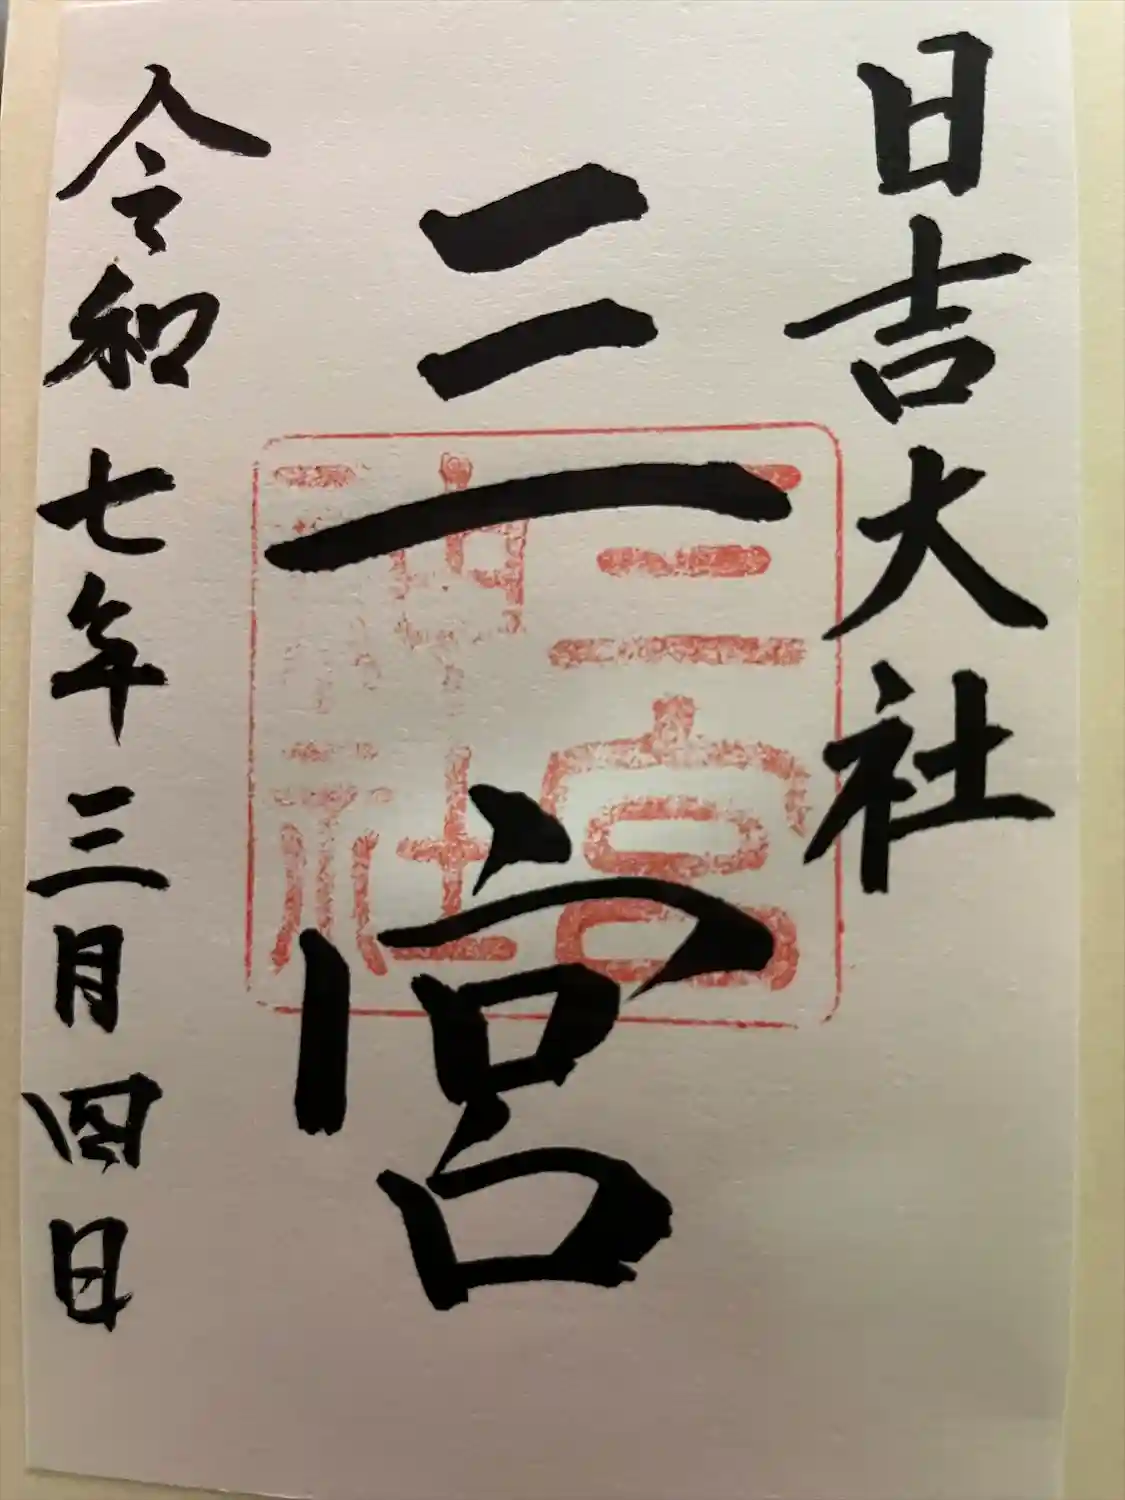 日吉大社
三宮
三宮
神社
令和七年三月四日